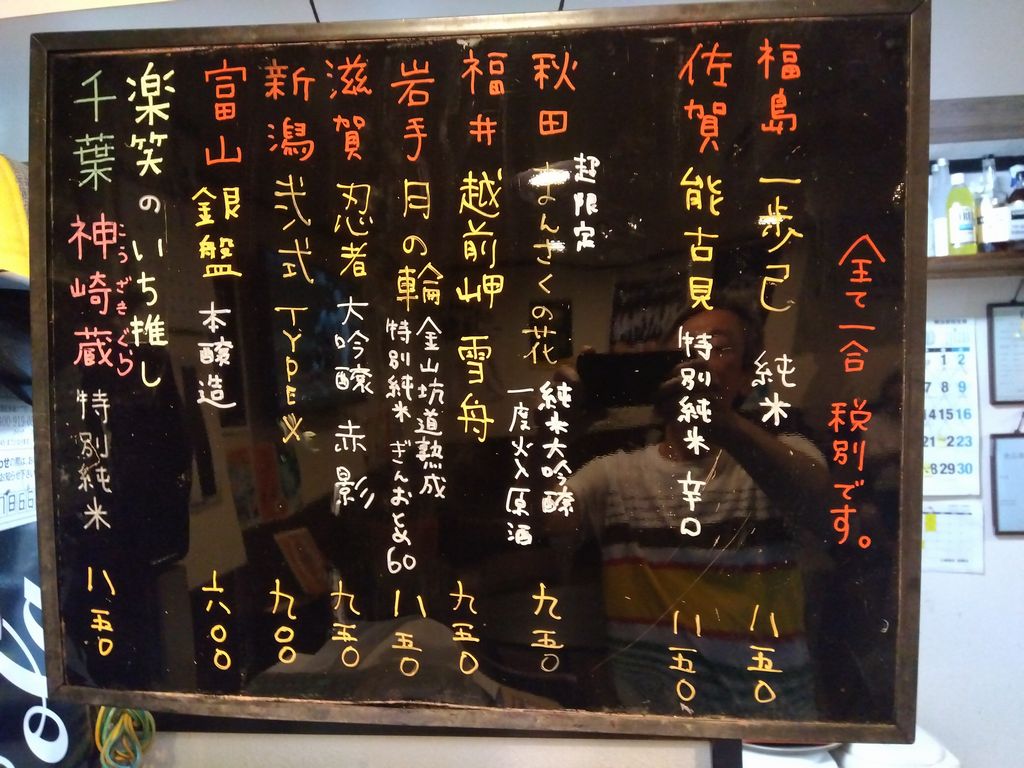 全て一合 税別です。
福島 一歩己 純米 八五〇
佐賀 能古見 特別純米 辛口 八五〇
超限定
秋田 まんさくの花 純米大吟醸 一度火入原酒 九五〇
福井 越前岬 雪舟 九五〇
岩手 月の輪 金山坑道熟成 特別純米 ぎんおとめ60 八五〇
滋賀 忍者 大吟醸 赤影 九五〇
新潟 弐式 TYPE X 九〇〇
富山 銀盤 本醸造 六〇〇
楽笑のいち推し
千葉 神崎蔵 特別純米 八五〇
こうざきぐら